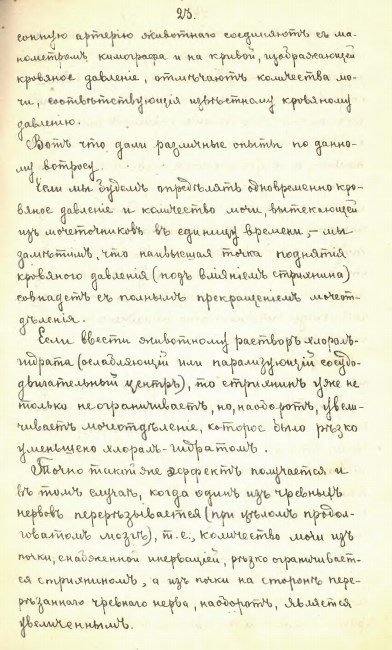 23.
сонную артерію животнаго соединяютъ съ ма-
нометромъ кимографа и на кривой, изображающей
кровяное давленіе, отмѣчаютъ количества мо-
чи, соотвѣтствующія извѣстному кровяному
давленію.
Вотъ что дали различные опыты по данно-
му вопросу.
Если мы будемъ опредѣлять одновременно кро-
вяное давленіе и количество мочи, вытекающей
изъ мочеточниковъ въ единицу времени, – мы
замѣтимъ, что наивысшая точка поднятія
кровяного давленія (подъ вліяніемъ стрихнина)
совпадетъ съ полнымъ прекращеніемъ мочеот-
дѣленія.
Если ввести животному растворъ хлорал-
гидрата (ослабляющій или парализующій сосудо-
двигательный центръ), то стрихнинъ уже не
только не ограничиваетъ, но, наоборотъ, увели-
чиваетъ мочеотдѣленіе, которое было рѣзко
уменьшено хлорал-гидратомъ.
Точно такой же эффектъ получается и
въ томъ случаѣ, когда одинъ изъ чревныхъ
нервовъ перерѣзывается (при цѣломъ продол-
говатомъ мозгѣ), т.е., количество мочи изъ
почки, снабженной инерваціей, рѣзко ограничивает-
ся стрихниномъ, а изъ почки на сторонѣ пере-
рѣзаннаго чревнаго нерва, наоборотъ, является
увеличеннымъ.